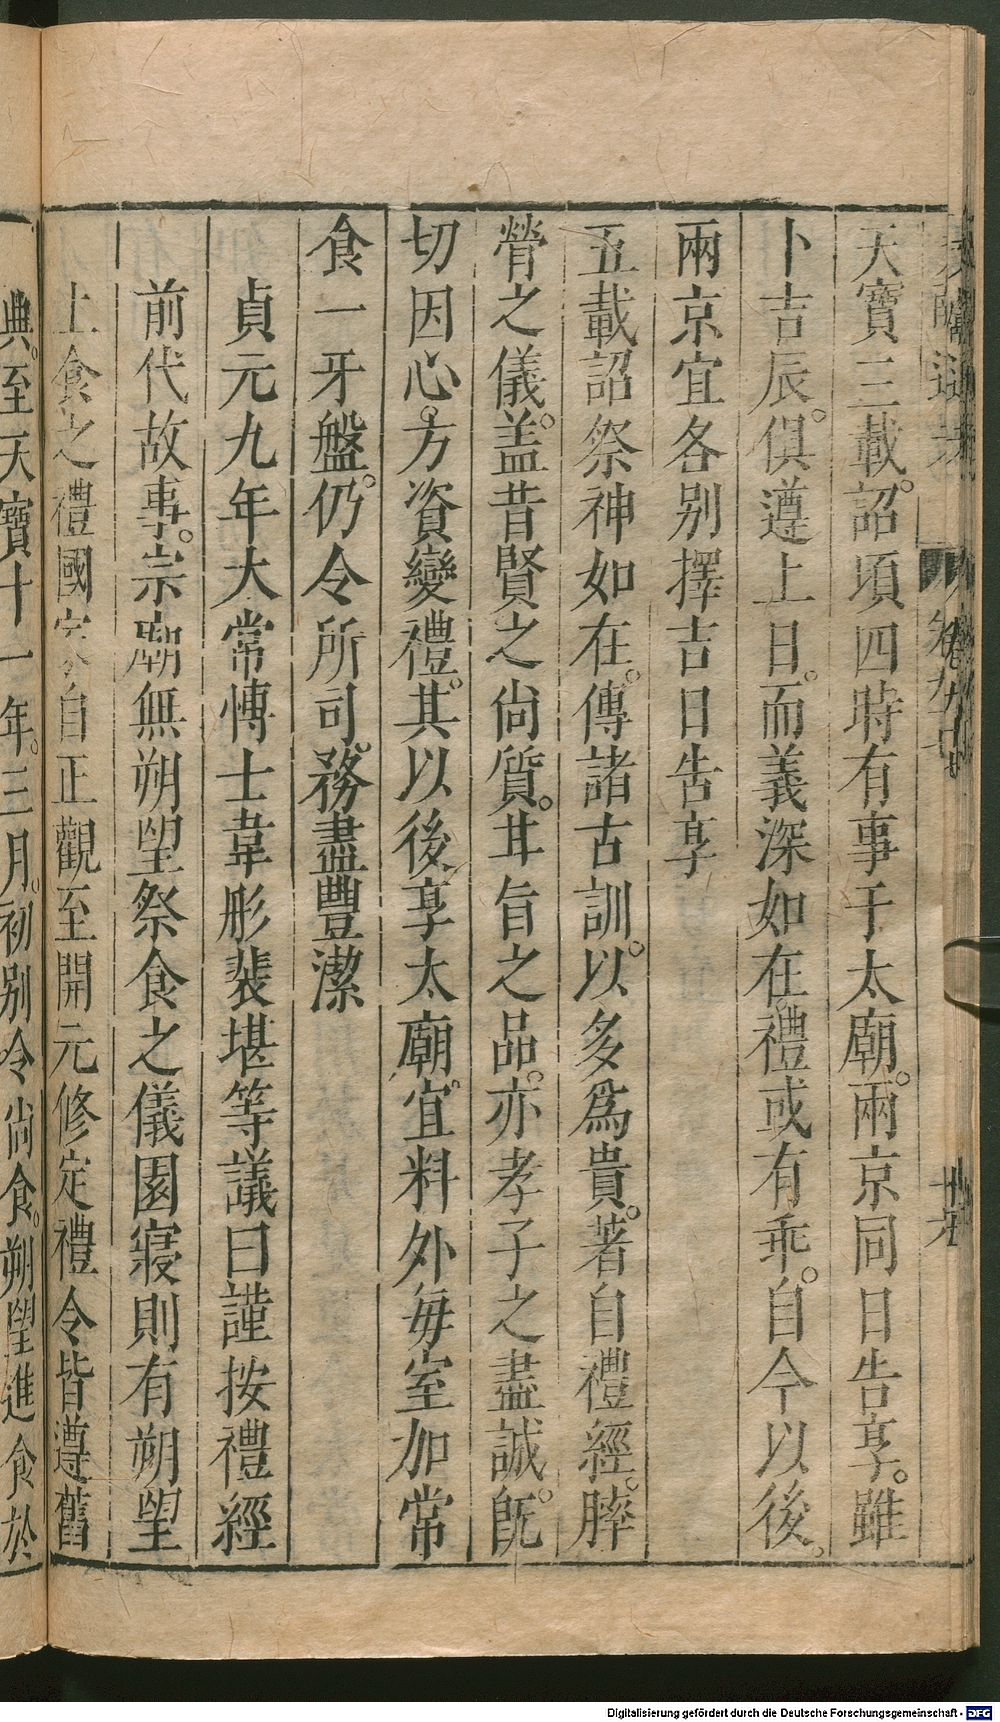 天寶三載。詔頃四時有事于太廟。兩京同日告享。雖
卜吉辰。俱遵上日。而義深如在禮或有乖。自今以後。
兩京宜各別擇吉日告享
五載詔祭神如在。傳諸古訓。以多爲貴。著自禮經。膟
膋之儀。盖昔賢之尙質。甘旨之品。亦孝子之盡誠。旣
切因心。方資變禮。其以後享太廟。宜料外每室加常
食一牙盤。仍令所司。務盡豐潔
貞元九年大常慱士韋彤裴堪等議曰謹按禮經
前代故事。宗廟無朔望祭食之儀園寢則有朔望
上食之禮國家自正觀至開元修定禮令皆遵舊
典。至天寶十一年。三月。初别令尙食。朔望進食於
Digitalisierung gefördert durch die Deutsche Forschungsgemeinschaft - DFG